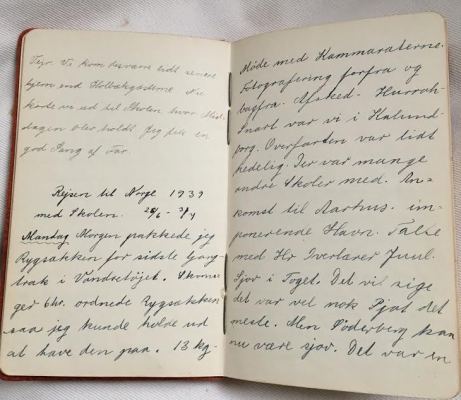 Tejr. Vi kom desværre lidt senere
hjem end Holbækgadterne. Vi
kørte vi ud til Skolen hvor Mid-
dagen blev holdt. Jeg fik en
god Seng af Far.
Rejsen til Norge 1939
med Skolen. 26/6 - 3/7
Mandag Morgen pakkede jeg
Rygsækken for sidste Gang
trak i Vandretøjet. Skrædder
ger Chr. ordnede Rygsækken
saa jeg kunde holde ud
at have den paa. 13 kg.
Møde med Kammaraterne.
Fotografering forfra og
bagfra. Afsked. Hurrah
Snart var vi i Kalund-
borg. Overfarten var lidt
kedelig. Der var mange
andre Skoler med. An-
komst til Aarhus. im-
ponerende Havn. Talte
med Hr Overlærer Juul.
Sjov i Toget. Det vil sige
det var vel nok Pjat det
meste. Men Søderberg kan
nu være sjov. Det var en